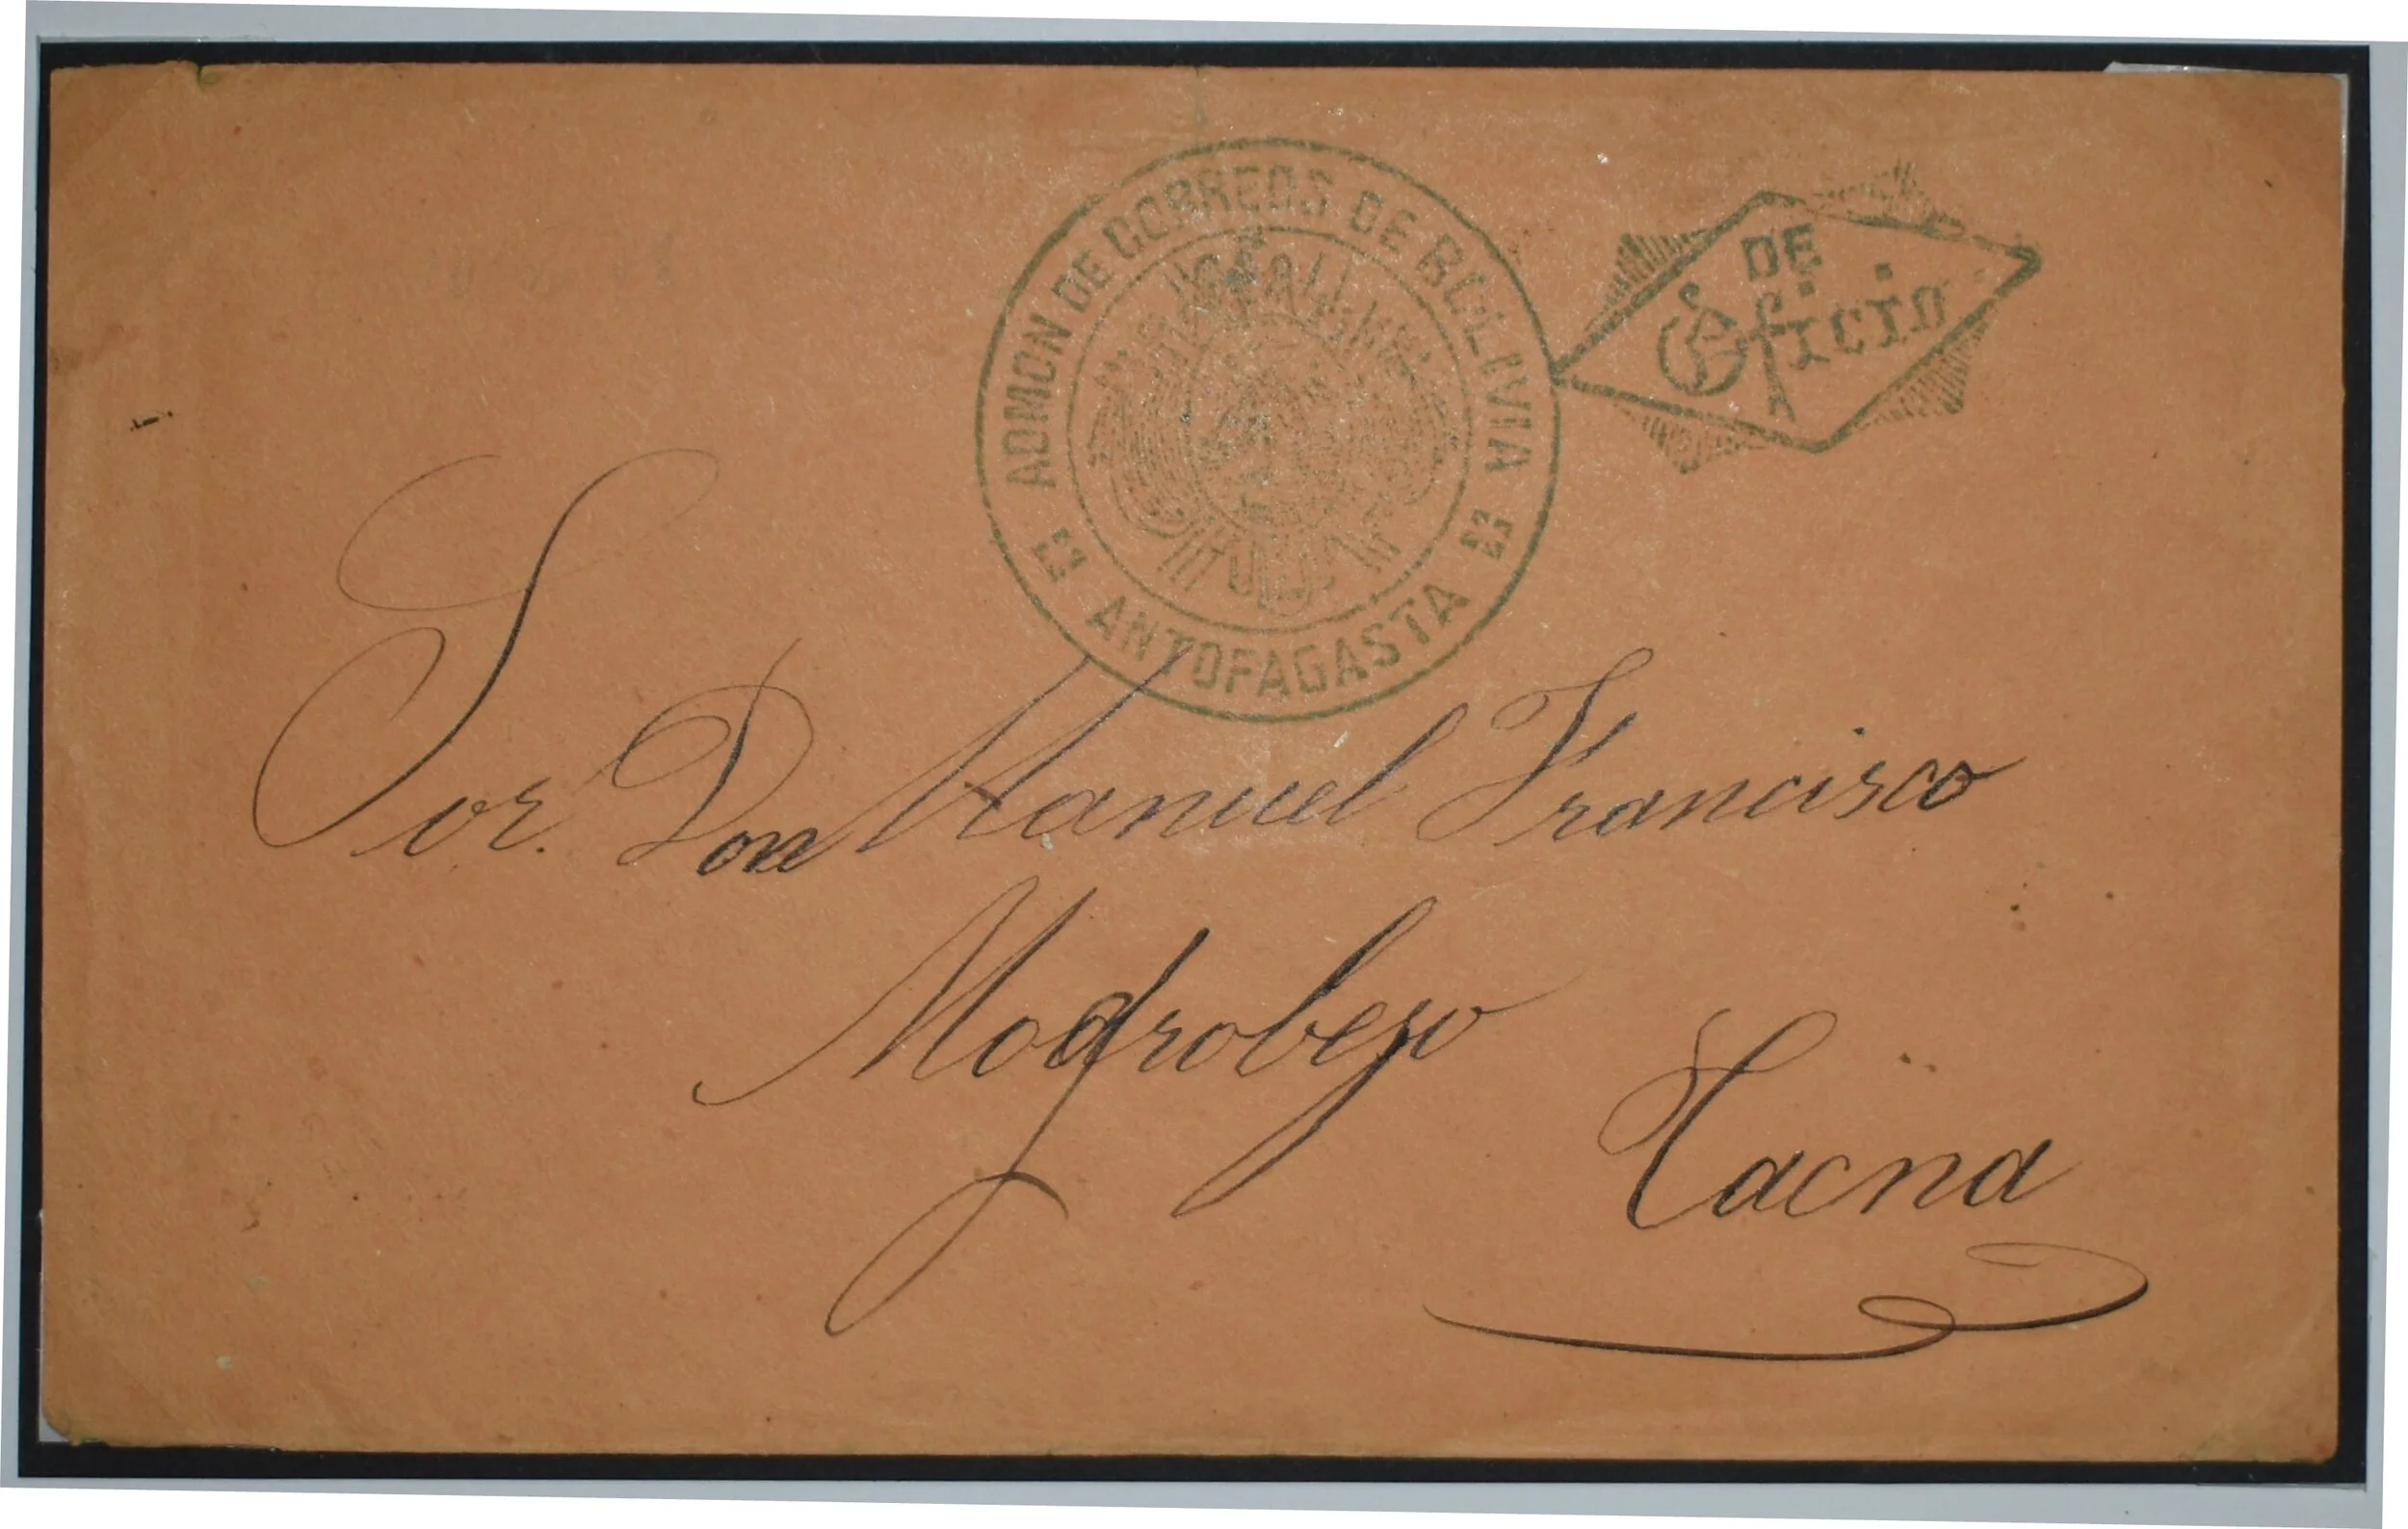 ADMON DE CORREOS DE BOLIVIA
ANTOFAGASTA
DE
Oficio
Sor. Don Manuel Francisco
Mogrobejo
Tacna